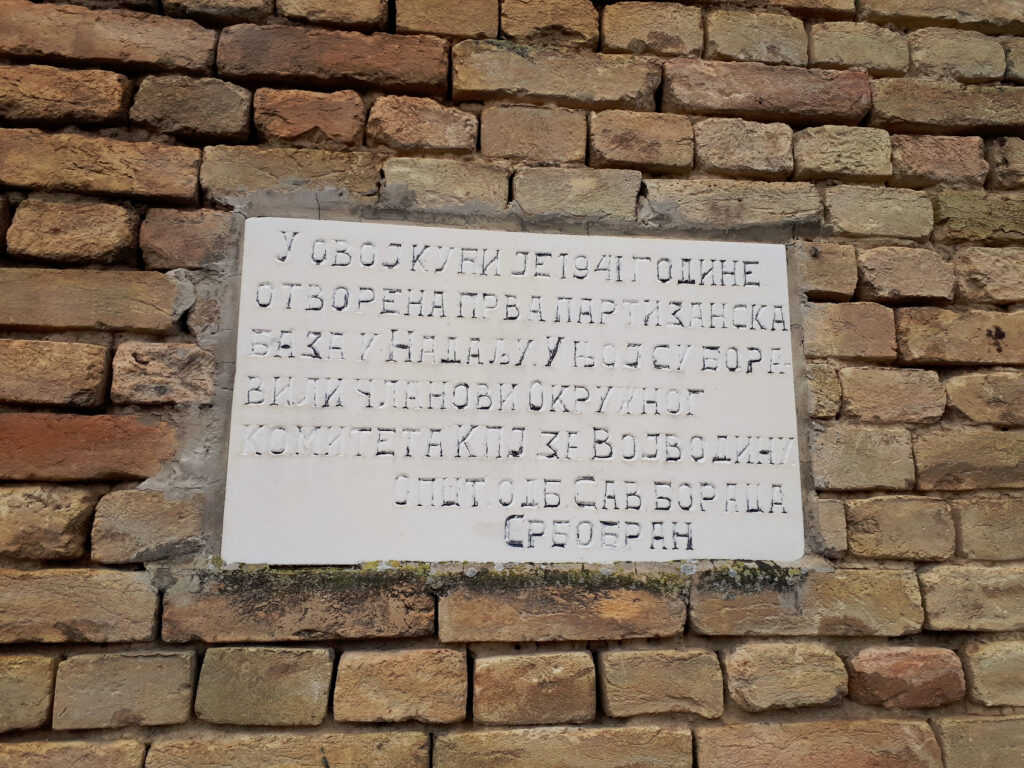 У ОВОЈ КУЋИ ЈЕ 1941 ГОДИНЕ
ОТВОРЕНА ПРВА ПАРТИЗАНСКА
БАЗА У НАДАЉУ. У ЊОЈ СУ БОРА
ВИЛИ ЧЛАНОВИ ОКРУЖНОГ
КОМИТЕТА КПЈ ЗА ВОЈВОДИНУ
ОПШТ. ОДБ. САВ. БОРАЦА
СРБОБРАН